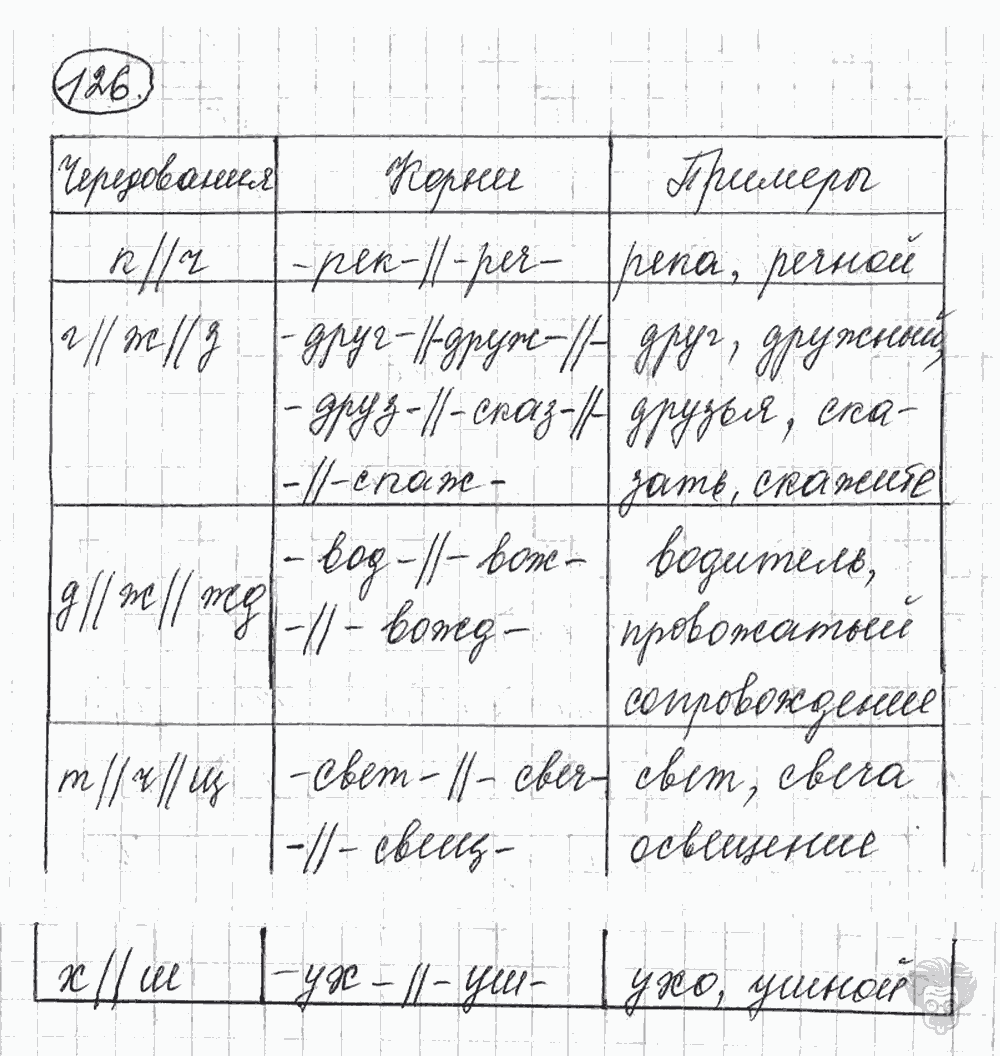 126.
Чередования Корни Примеры
к//ч -рек-//-реч- река, речной
г//ж//з -друг-//-друж-//- друг, дружный,
-друз-//-сказ-//- друзья, ска-
-//-скаж- зать, скажите
д//ж//жд -вод-//-вож- водитель,
-//-вожд- провожатый
сопровождение
т//ч//щ -свет-//-свеч- свет, свеча
-//-свещ- освещение
х//ш -ух-//-уш- ухо, ушной